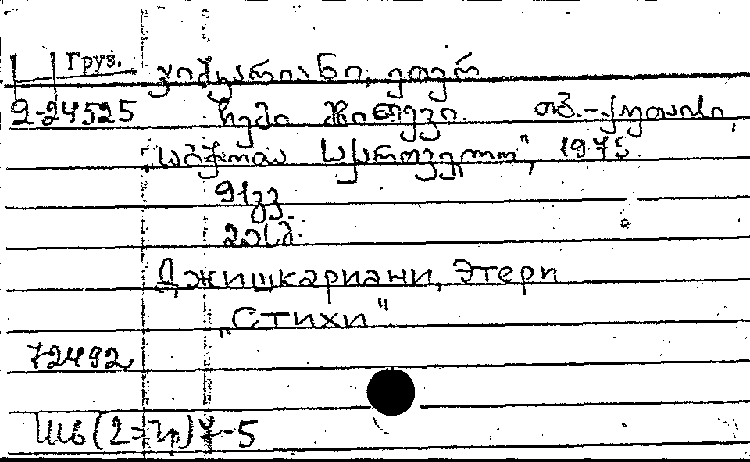 Груз. ჯიშკარიანი, ეთერ
2-24525 ჩემი მითევი. თბ.-ქუთაისი,
"საბჭოთა საქართველო", 1975.
91გვ.
Джишкариани, Этери
"Стихи"
72492